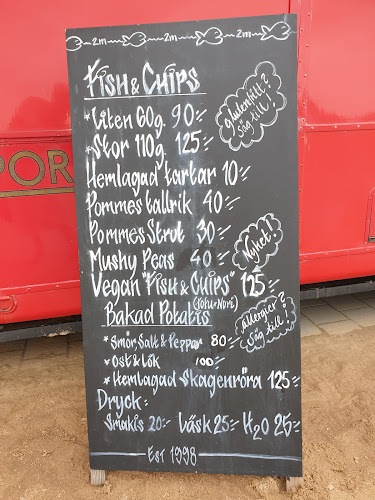 2m 2m 2m
Fish & Chips
*Liten 60g. 90:-
*Stor 110g. 125:-
glutenfritt?
Säg till!
Hemlagad tartar 10:-
Pommes tallrik 40:-
Pommes Strut 30:-
Nyhet!
Mushy Peas 40:-
Vegan "Fish & Chips" 125:-
(Tofu + Nori)
Bakad Potatis
allergier?
Säg till!
* Smör, Salt & Peppar 80:-
* Ost & Lök 100:-
* Hemlagad Skagenröra 125:-
Dryck:
Smakis 20:- Läsk 25:- H2O 25:-
Est 1998
POR